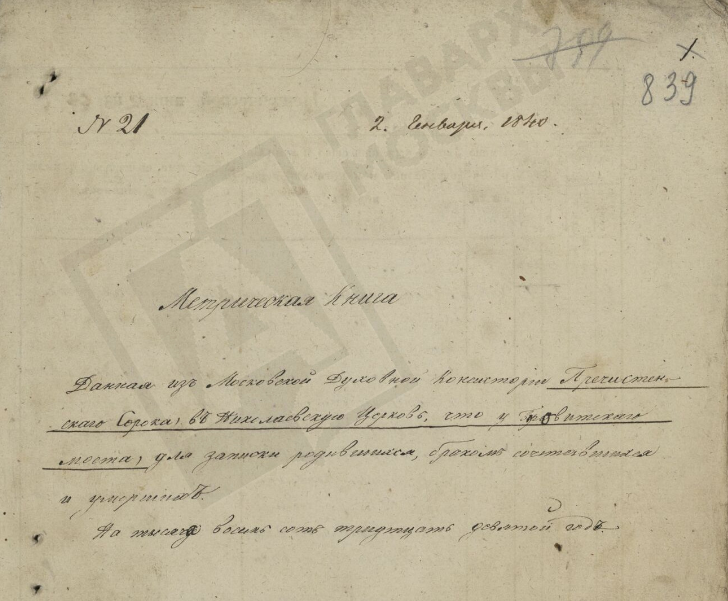 759
1.
839
N 21
2. Генваря, 1840.
Метрическая Книга
Данная изъ Московской Духовной Консисторіи Пречистен-
скаго Сорока, въ Николаевскую Церковь, что у
места, для записки родившихся, бракомъ сочетавшихся
и умершихъ.
На тысяча восемь сотъ тридцать девятой годъ.
ГЛАВАРХИВ
МОСКВЫ